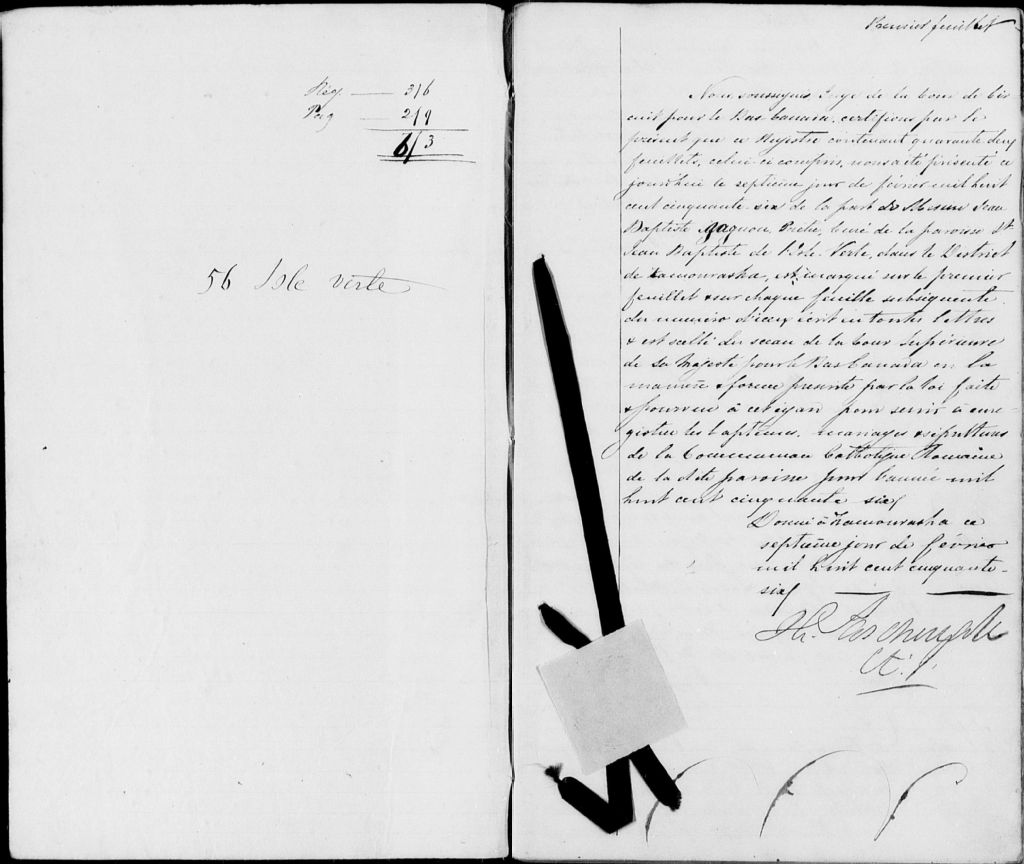 Rég. — 3/6
Pag — 2/9
6/3
56 Isle verte
Premier feuillet
Nous soussigné Juge de la Cour de Cir
cuit pour le Bas Canada, certifions par le
présent que ce Registre contenant quarante deux
feuillets, celui ci compris, nous a été présenté ce
jourdhui le septième jour de février mil huit
cent cinquante six de la part de Messire Jean
Baptiste Gagnon, Prêtre, Curé de la paroisse St
Jean Baptiste de l'Isle Verte, dans le District
de Kamouraska, est marqué sur le premier
feuillet & sur chaque feuille subséquente
du numéro d'iceux écrit en toutes lettres
& est scellé du sceau de la Cour Supérieure
de Sa Majesté pour le Bas Canada en la
manière & forme prescrite par la loi faite
& pourvue à cet égard pour servir à enre-
gistrer les baptêmes, mariages & sépultures
de la Communion Catholique Romaine
de la dite paroisse pour l'année mil
huit cent cinquante six
Donné à Kamouraska ce
septième jour de février
mil huit cent cinquante-
six